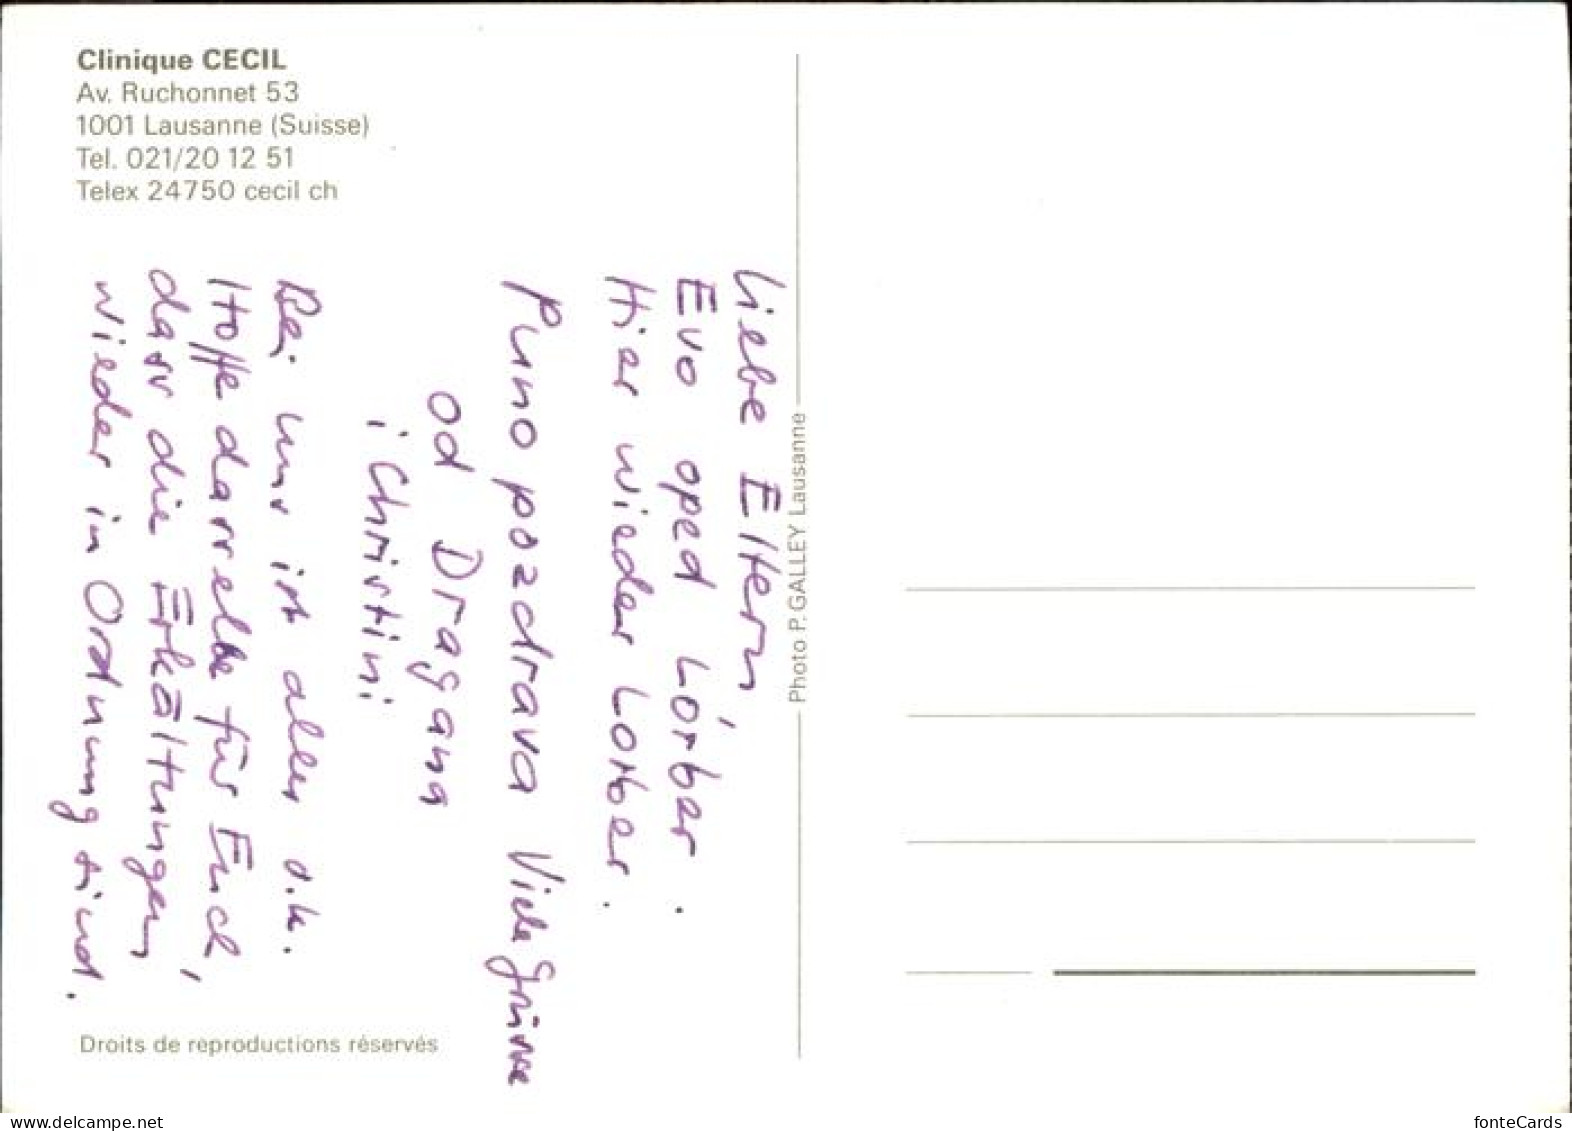 Clinique CECIL
Av. Ruchonnet 53
1001 Lausanne (Suisse)
Tel. 021/20 12 51
Telex 24750 cecil ch
Liebe Eltern
Evo oped Lórber.
Hier wieder Lorber.
Puno pozdrava Viele Grüsse
od Dragana
i Christini
Bei uns ist alles o.k.
Hoffe dasselbe für Euch,
dass die Erkältungen
wieder in Ordnung sind.
Photo P. GALLEY Lausanne
Droits de reproductions réservés
fonteCards
www.delcampe.net